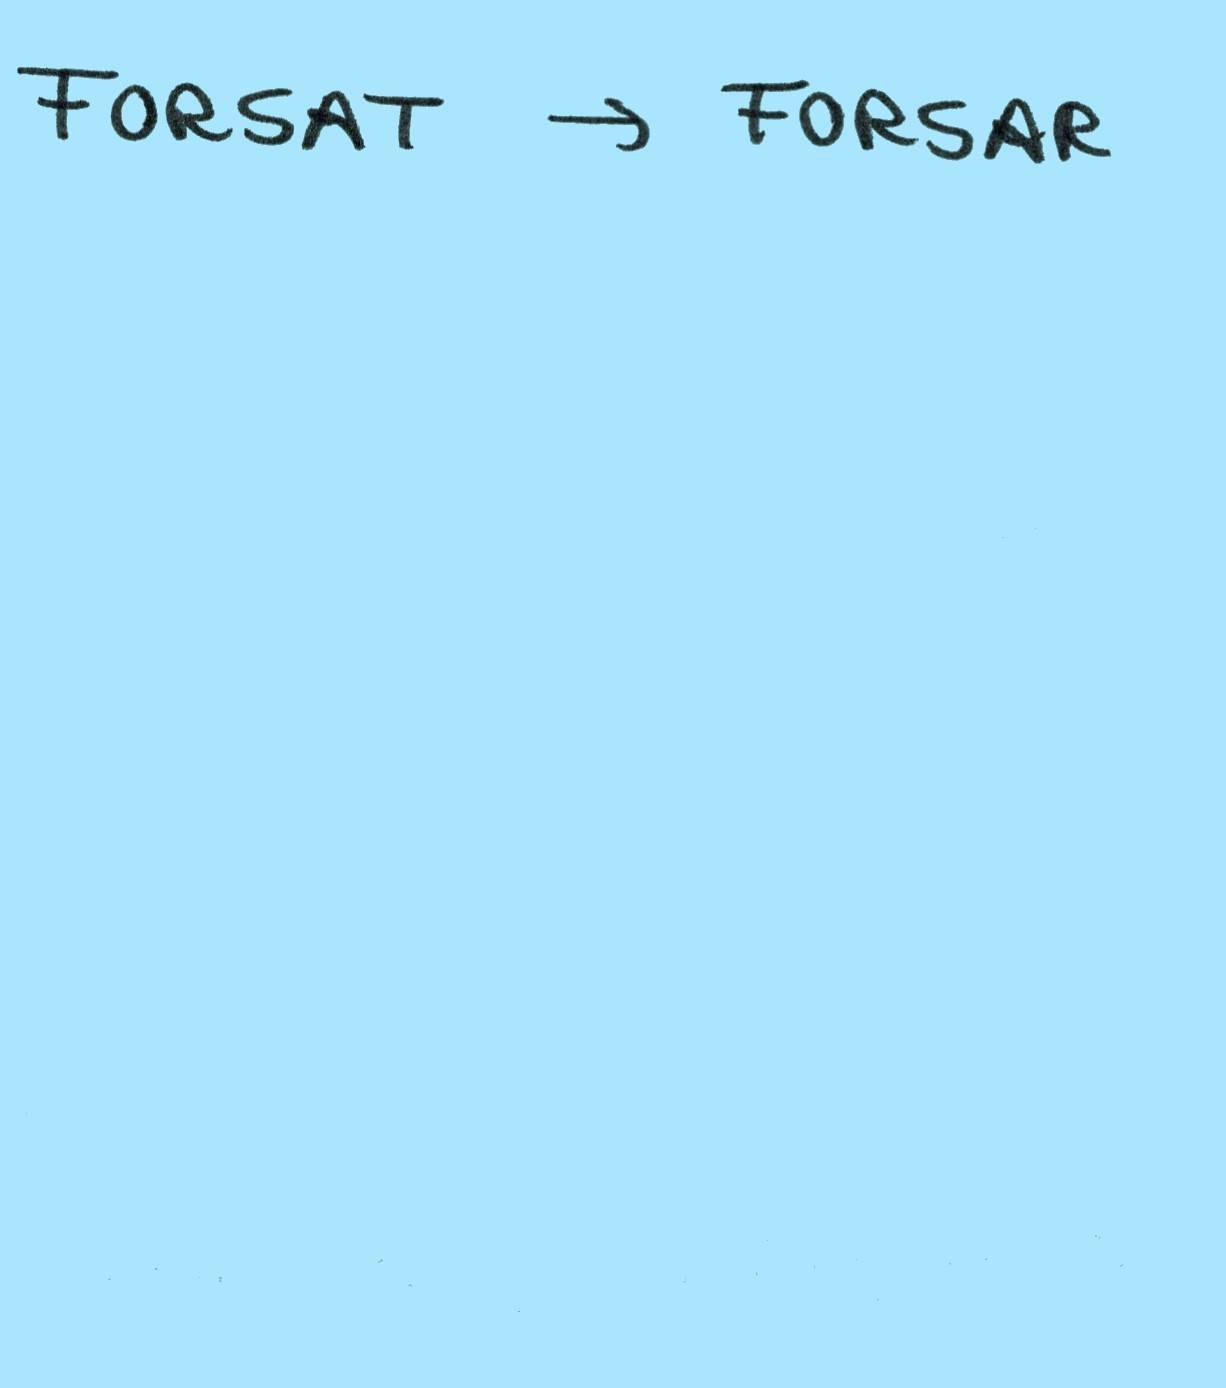 FORSAT → FORSAR